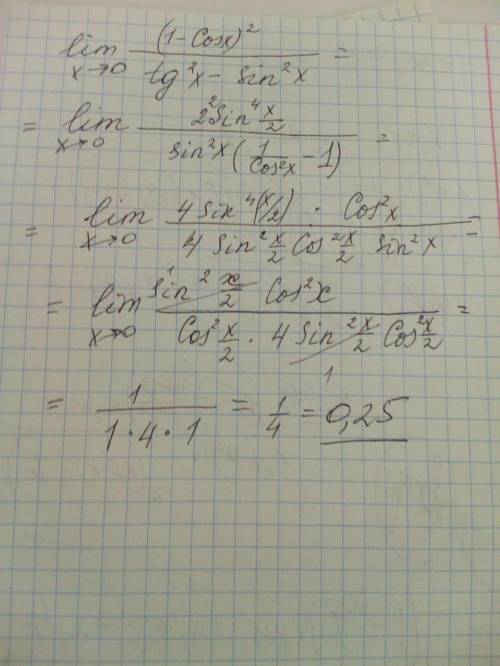 lim x→0 (1 - Cosx)² / (tg²x - Sin²x) =
= lim x→0 2² Sin⁴ x/2 / (Sin²x (1/Cos²x - 1)) =
= lim x→0 4 Sin⁴(x/2) · Cos²x / (4 Sin² x/2 Cos² x/2 Sin²x) =
= lim x→0 Sin² x/2 Cos²x / (Cos² x/2 · 4 Sin² x/2 Cos² x/2) =
= 1 / (1·4·1) = 1/4 = 0,25